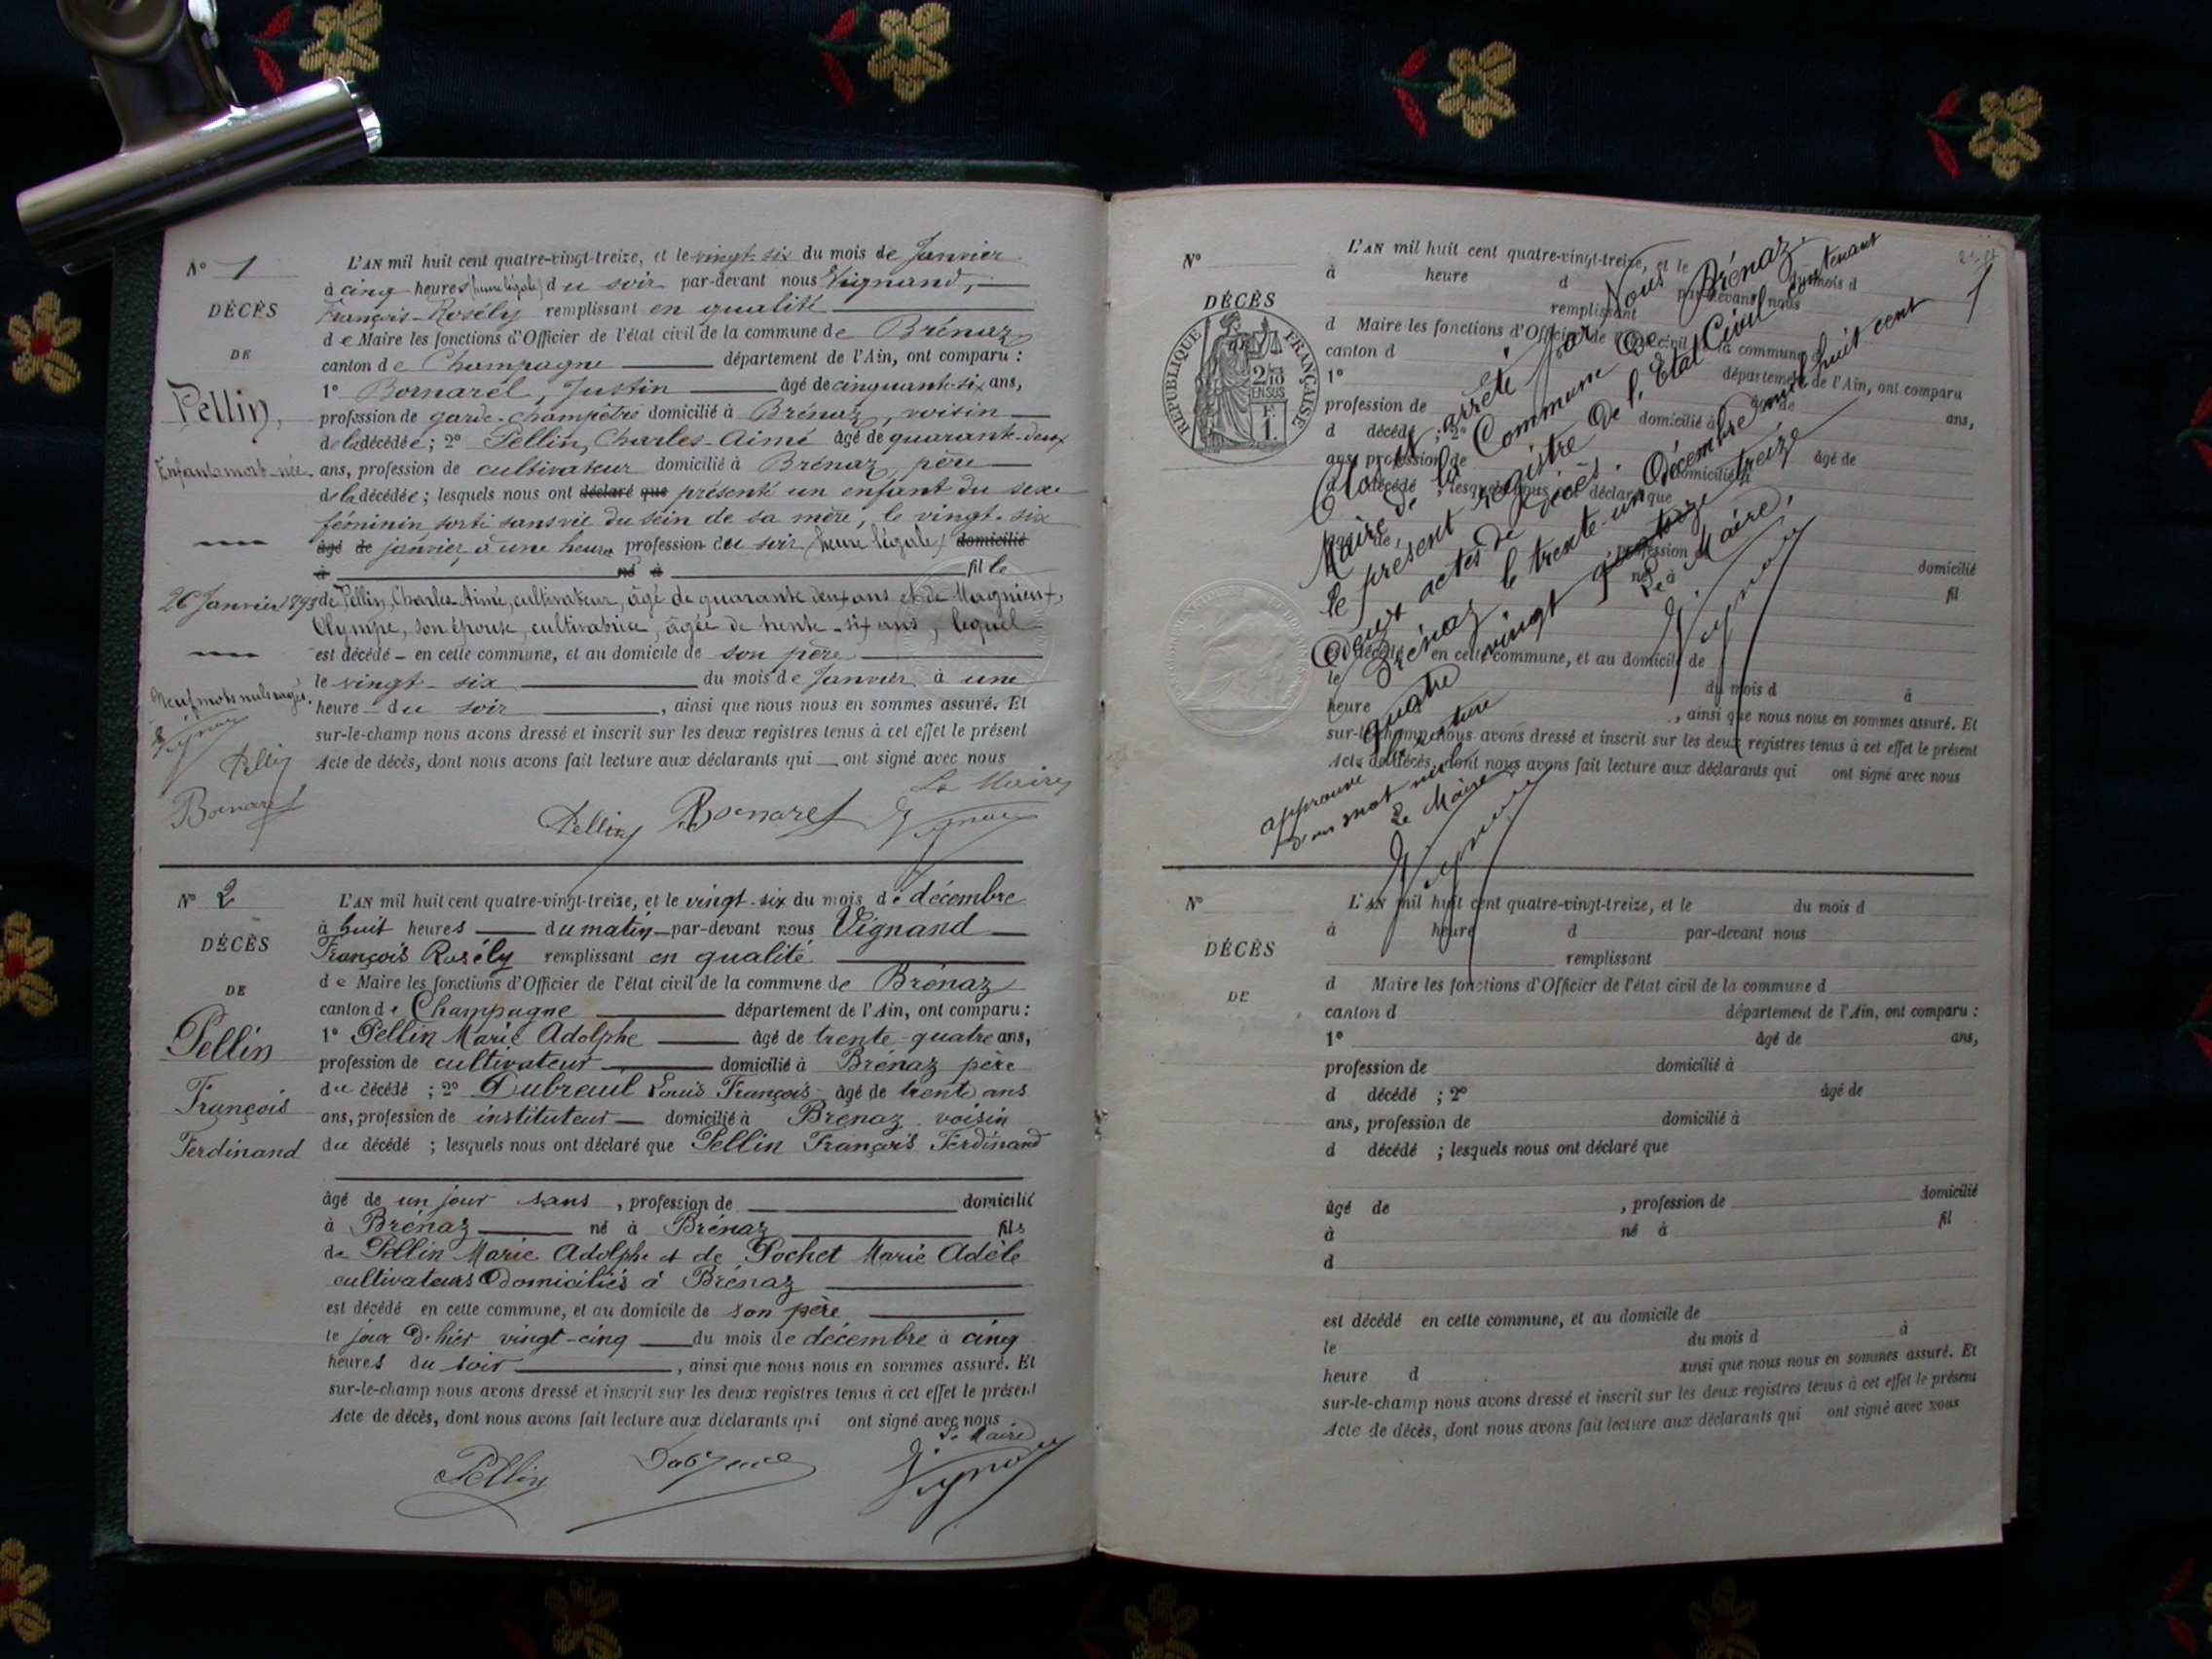 N° 1
DÉCÈS
DE
Pellin,
Enfant mort-née.
26 Janvier 1893
Neuf mots nuls rayés.
Pellin
Bornarel
L'AN mil huit cent quatre-vingt-treize, et le vingt-six du mois de Janvier
à cinq heures (heure légale) du soir par-devant nous Vignand,
François-Rosély remplissant en qualité
de Maire les fonctions d'Officier de l'état civil de la commune de Brénaz
canton de Champagne département de l'Ain, ont comparu :
1° Bornarel, Justin âgé de cinquante-six ans,
profession de garde-champêtre domicilié à Brénaz, voisin
de la décédée ; 2° Pellin, Charles-Aimé âgé de quarante-deux
ans, profession de cultivateur domicilié à Brénaz, père
de la décédée ; lesquels nous ont déclaré que présenté un enfant du sexe
féminin, sorti sans vie du sein de sa mère, le vingt-six
âgé de janvier, à une heure profession du soir (heure légale) domicilié
à né à fille
de Pellin, Charles-Aimé, cultivateur, âgé de quarante deux ans et de Magnient,
Olympe, son épouse, cultivatrice, âgée de trente-six ans, lequel
est décédé en cette commune, et au domicile de son père
le vingt-six du mois de Janvier à une
heure du soir, ainsi que nous nous en sommes assuré. Et
sur-le-champ nous avons dressé et inscrit sur les deux registres tenus à cet effet le présent
Acte de décès, dont nous avons fait lecture aux déclarants qui ont signé avec nous
Le Maire
Pellin Bornarel
N° 2
DÉCÈS
DE
Pellin
François
Ferdinand
L'AN mil huit cent quatre-vingt-treize, et le vingt-six du mois de décembre
à huit heures du matin par-devant nous Vignand
François Rosély remplissant en qualité
de Maire les fonctions d'Officier de l'état civil de la commune de Brénaz
canton de Champagne département de l'Ain, ont comparu :
1° Pellin Marie Adolphe âgé de trente-quatre ans,
profession de cultivateur domicilié à Brénaz père
du décédé ; 2° Dubreuil Louis François âgé de trente ans
ans, profession de instituteur domicilié à Brenaz voisin
du décédé ; lesquels nous ont déclaré que Pellin François Ferdinand
âgé de un jour sans, profession de domicilié
à Brénaz né à Brénaz fils
de Pellin Marie Adolphe et de Pochet Marie Adèle
cultivateurs domiciliés à Brénaz
est décédé en cette commune, et au domicile de son père
le jour d'hier vingt-cinq du mois de décembre à cinq
heures du soir, ainsi que nous nous en sommes assuré. Et
sur-le-champ nous avons dressé et inscrit sur les deux registres tenus à cet effet le présent
Acte de décès, dont nous avons fait lecture aux déclarants qui ont signé avec nous
Le Maire
Pellin
N°
DÉCÈS
RÉPUBLIQUE FRANÇAISE
2/10 EN SUS
F.
1.
L'AN mil huit cent quatre-vingt-treize, et le du mois d
à heure d par-devant nous
remplissant
d Maire les fonctions d'Officier de l'état civil de la commune
canton d département de l'Ain, ont comparu
1° âgé de ans,
profession de domicilié à
d décédé ; 2° âgé de
ans, profession de domicilié à
d décédé ; lesquels nous ont déclaré que
âgé de, profession domicilié
né à fil
est décédé en cette commune, et au domicile de
le du mois d à
heure, ainsi que nous nous en sommes assuré. Et
sur-le-champ nous avons dressé et inscrit sur les deux registres tenus à cet effet le présent
Acte de décès, dont nous avons fait lecture aux déclarants qui ont signé avec nous
Clos et arrêté par Nous
Maire de la Commune de Brénaz.
le présent registre de l'Etat Civil contenant
deux actes de décès. 1
Brénaz le trente-un Décembre mil huit cent
quatre vingt quatorze treize
Le Maire,
approuvé la rature
d'un mot nul
Le Maire
N°
DÉCÈS
DE
L'AN mil huit cent quatre-vingt-treize, et le du mois d
à heure d par-devant nous
remplissant
d Maire les fonctions d'Officier de l'état civil de la commune d
canton d département de l'Ain, ont comparu :
1° âgé de ans,
profession de domicilié à
d décédé ; 2° âgé de
ans, profession de domicilié à
d décédé ; lesquels nous ont déclaré que
âgé de, profession de domicilié
à né à fil
d
est décédé en cette commune, et au domicile de
le du mois d à
heure d ainsi que nous nous en sommes assuré. Et
sur-le-champ nous avons dressé et inscrit sur les deux registres tenus à cet effet le présent
Acte de décès, dont nous avons fait lecture aux déclarants qui ont signé avec nous